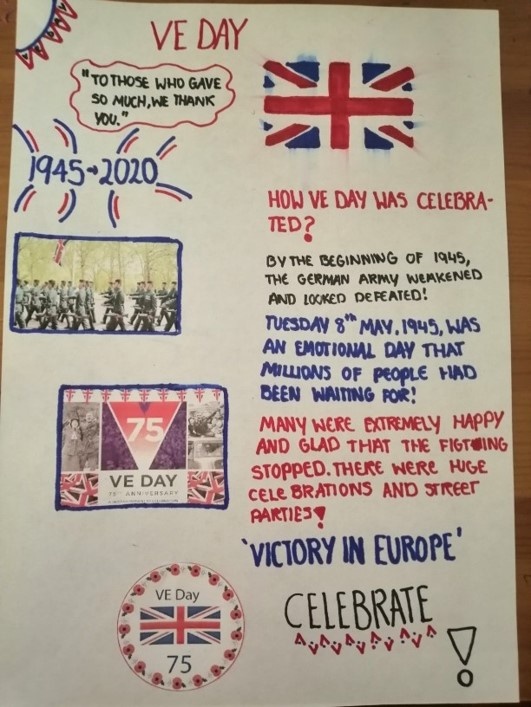 VE DAY
"TO THOSE WHO GAVE
SO MUCH, WE THANK
YOU."
1945→2020
HOW VE DAY WAS CELEBRA-
TED?
BY THE BEGINNING OF 1945,
THE GERMAN ARMY WEAKENED
AND LOOKED DEFEATED!
TUESDAY 8th MAY, 1945, WAS
AN EMOTIONAL DAY THAT
MILLIONS OF PEOPLE HAD
BEEN WAITING FOR!
MANY WERE EXTREMELY HAPPY
AND GLAD THAT THE FIGTHING
STOPPED. THERE WERE HUGE
CELEBRATIONS AND STREET
PARTIES!
75
VE DAY
75TH ANNIVERSARY
'VICTORY IN EUROPE'
CELEBRATE
!
VE Day
75